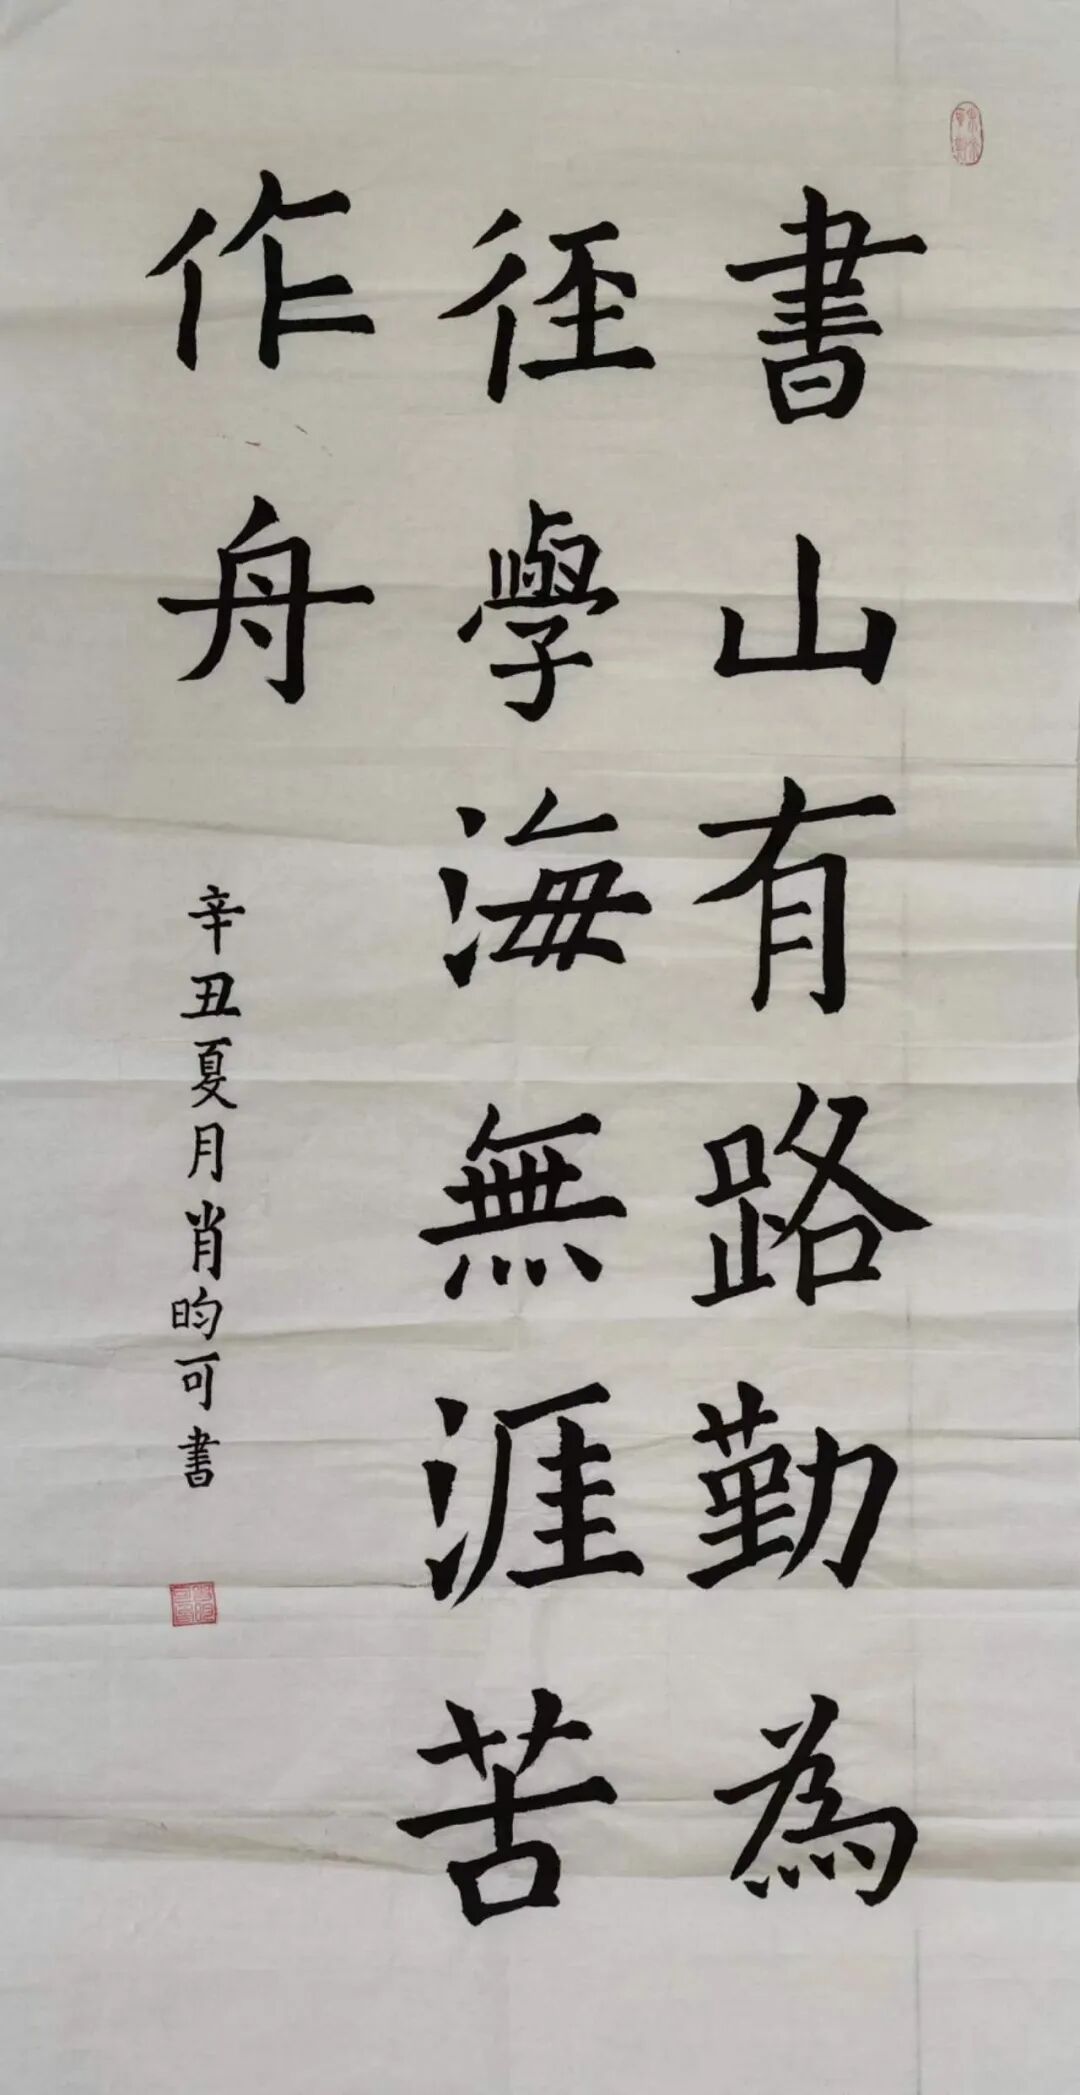 書山有路勤為
徑學海無涯苦
作舟
辛丑夏月肖昀可書